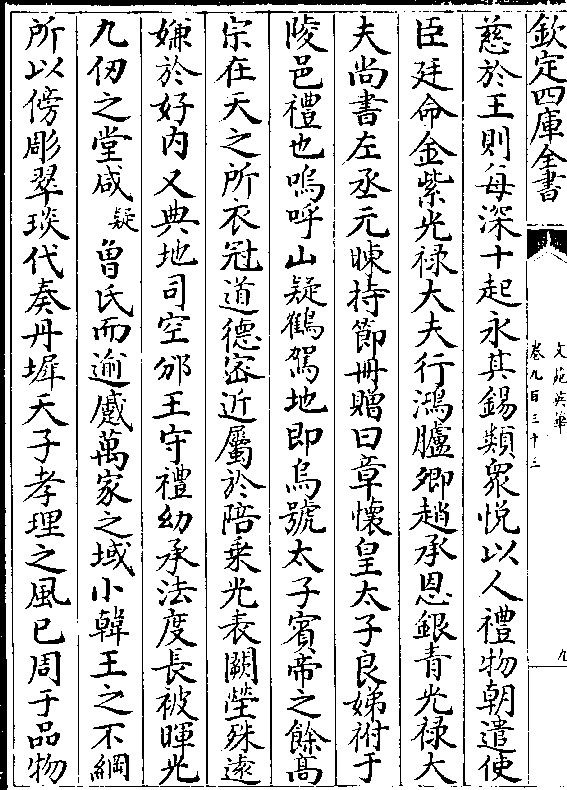 欽定四庫全書
文苑英華
卷九百三十三
九
慈於王則每深十起永其錫類衆悦以人禮物朝遣使
臣廷命金紫光禄大夫行鴻臚卿趙承恩銀青光禄大
夫尚書左丞元暕持節冊贈曰章懷皇太子良娣祔于
陵邑禮也嗚呼山疑鶴駕地即烏號太子賓帝之餘髙
宗在天之所衣冠道德宻近屬於陪乗光表闕塋殊逺
嫌於好内又典地司空邠王守禮幼承法度長被暉光
九仞之堂咸疑曽氏而逾慼萬家之域小韓王之不綱
所以傍彫翠琰代奏丹墀天子孝理之風已周于品物